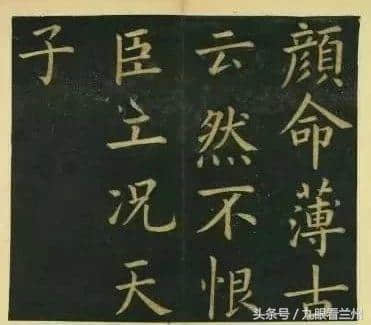 顔命薄古
云然不恨
臣工况天
子
头条号 / 九眼看兰州